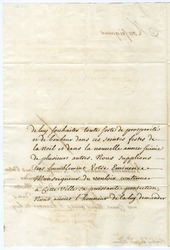 Monseigneur
De luy souhaitter toute sorte de prosperité
et de bonheur dans ces saintes festes de
la Noël et dans la nouvelle année suivie
de plusieurs autres. Nous suplions
tres humblement Votre Eminence
Monseigneur de vouloir continuer
à cette Ville sa puissante protection,
Nous avons l'honneur de la luy demander